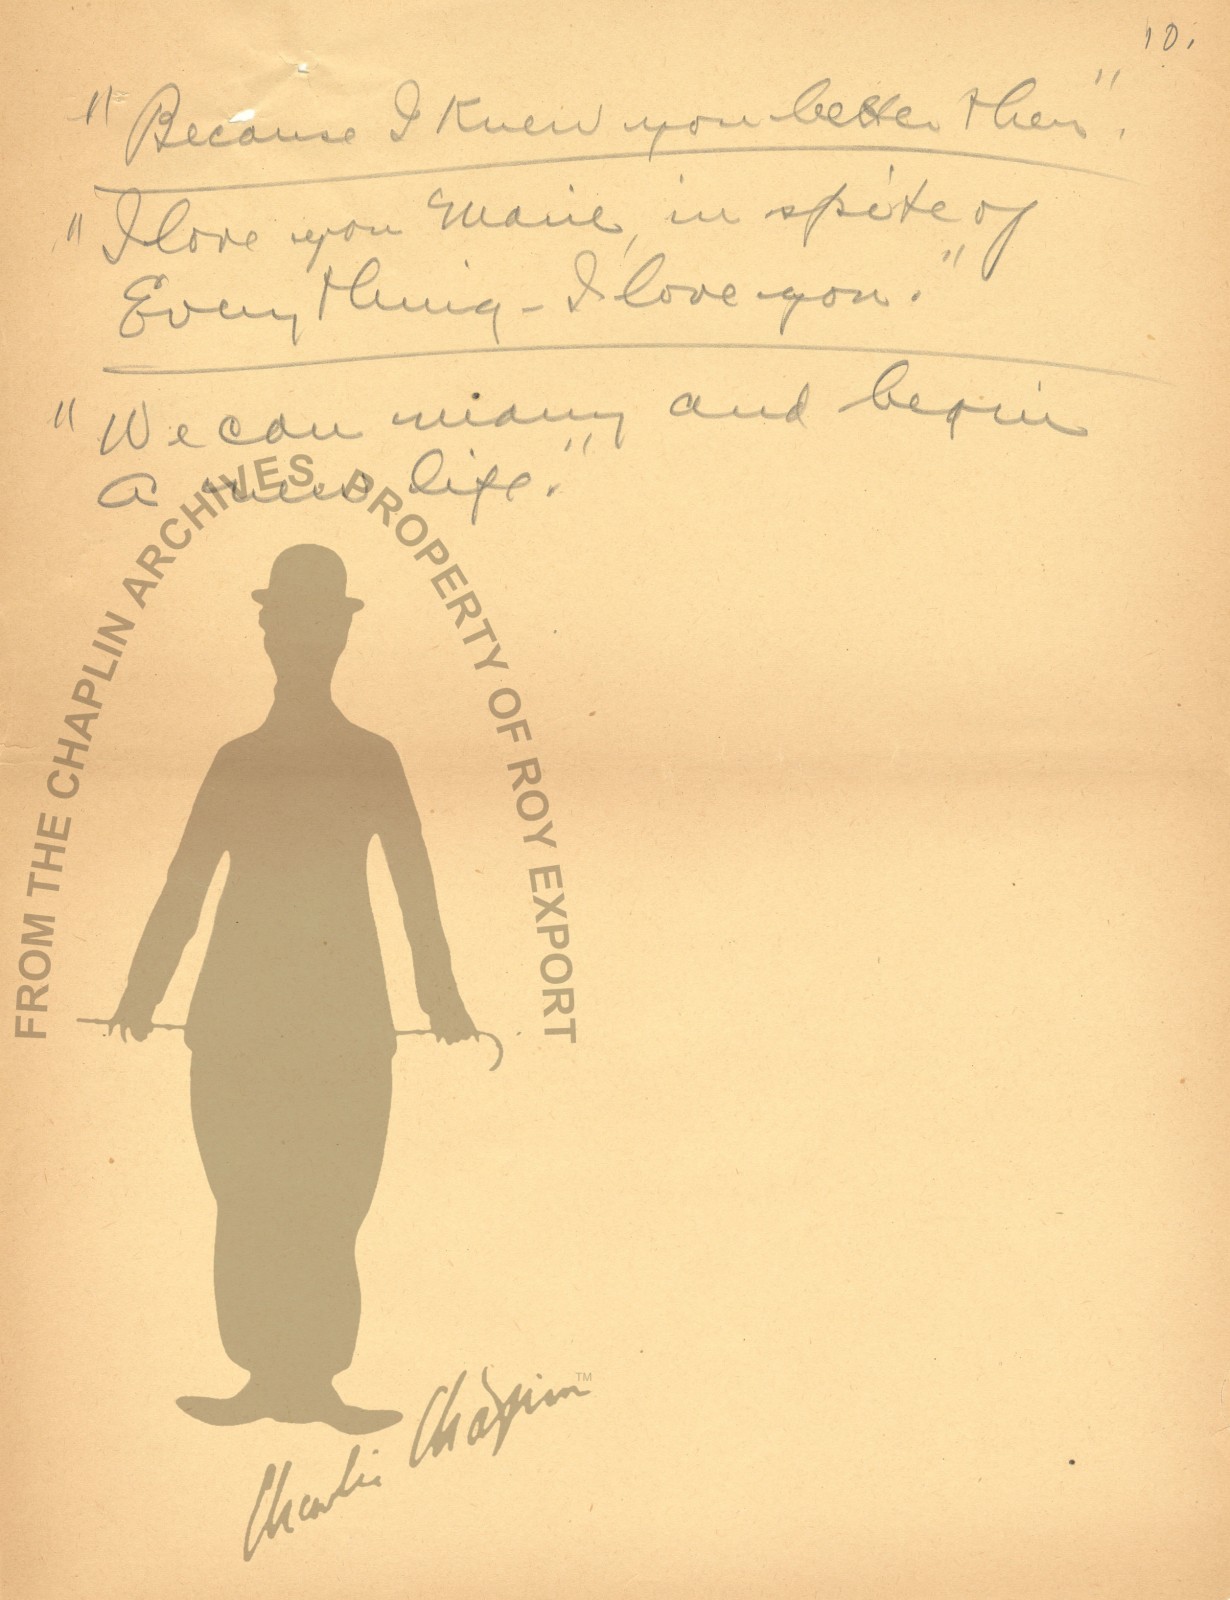 10.
"Because I Knew you better then".
"I love you Marie, in spite of
Everything - I love you."
"We can marry and begin
a new life."
FROM THE CHAPLIN ARCHIVES, PROPERTY OF ROY EXPORT
Charlie Chaplin TM